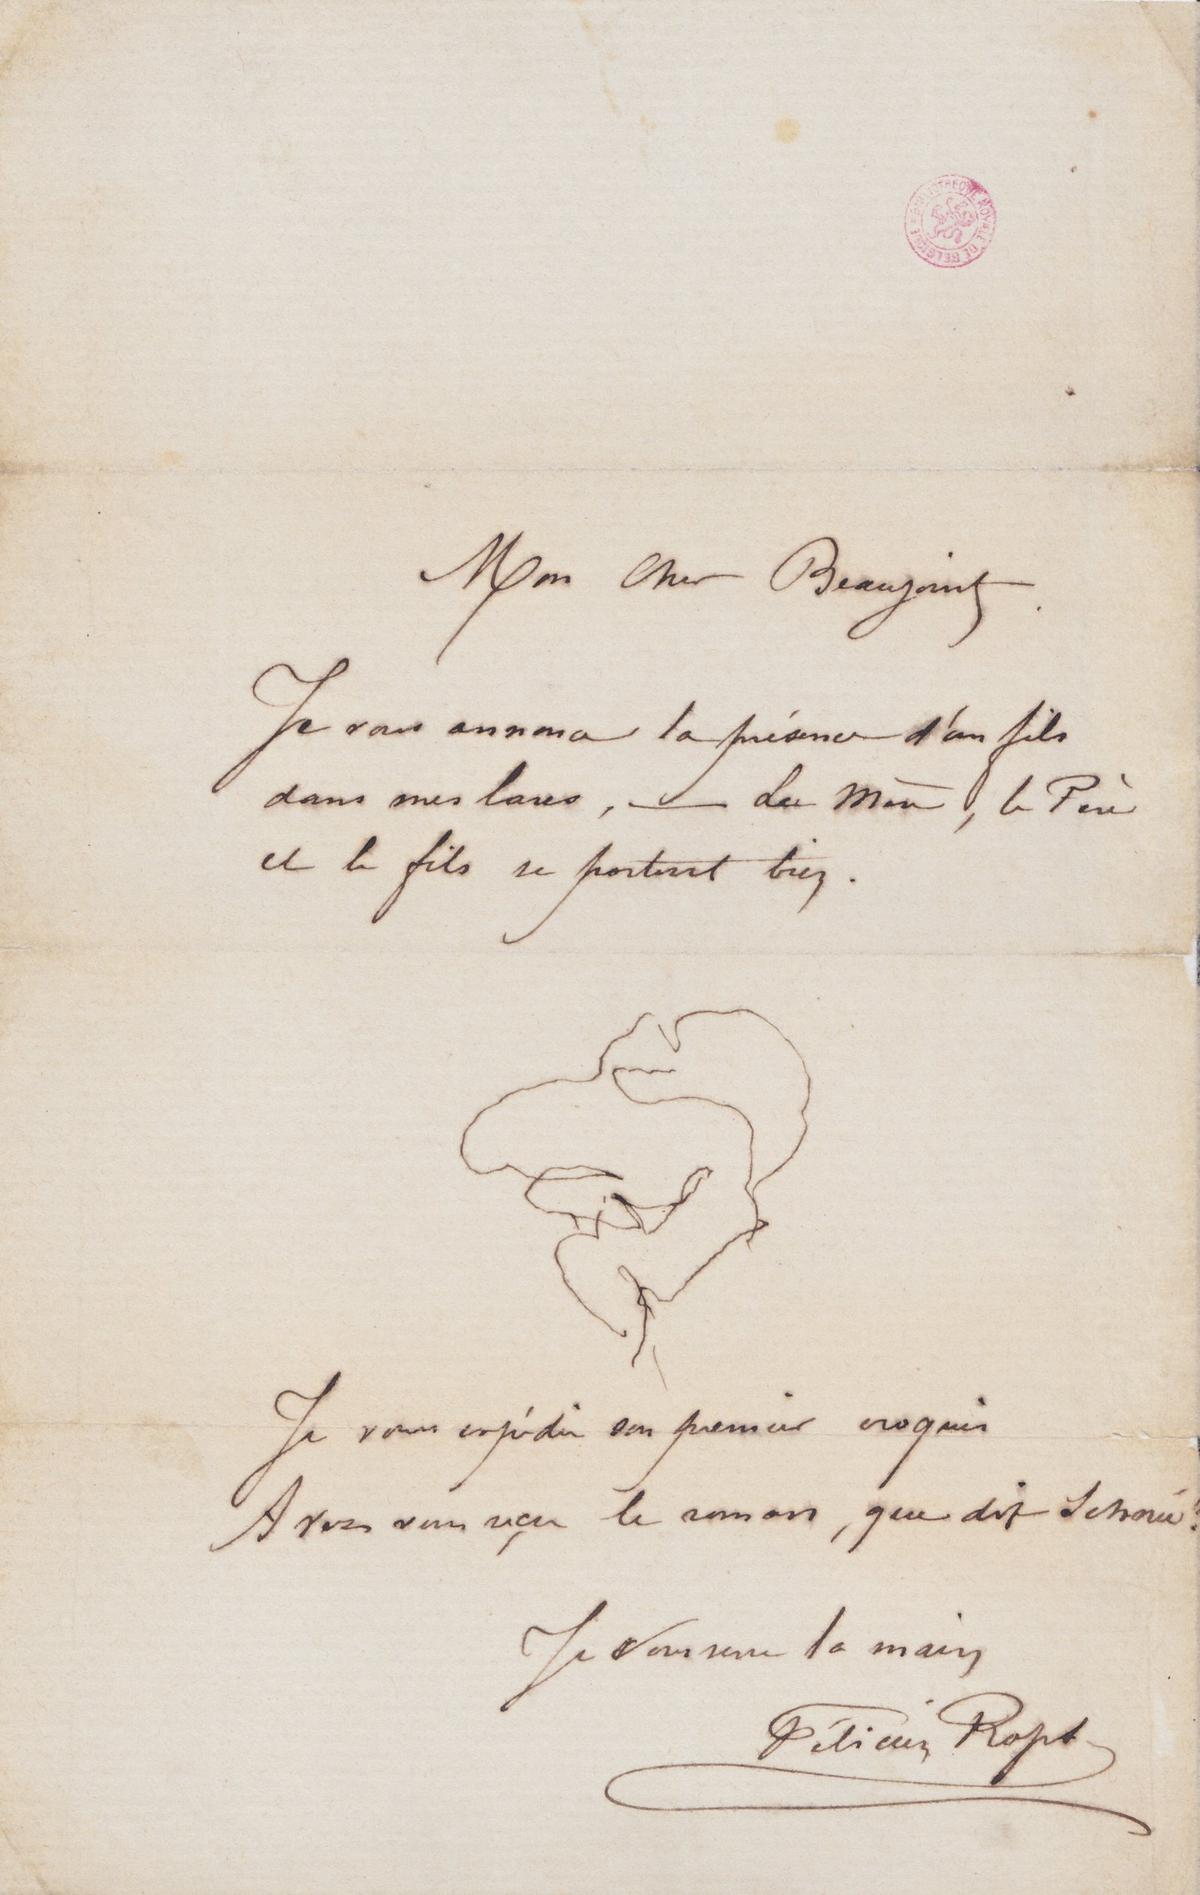 BIBLIOTHEQUE ROYALE DE BELGIQUE
Mon Cher Beaujoint.
Je vous annonce la présence d'un fils
dans mes lares, — La Mère, le Père
et le fils se portent bien.
Je vous expédie son premier croquis
Avez vous reçu le roman, que dit
Je vous serre la main
Félicien Rops